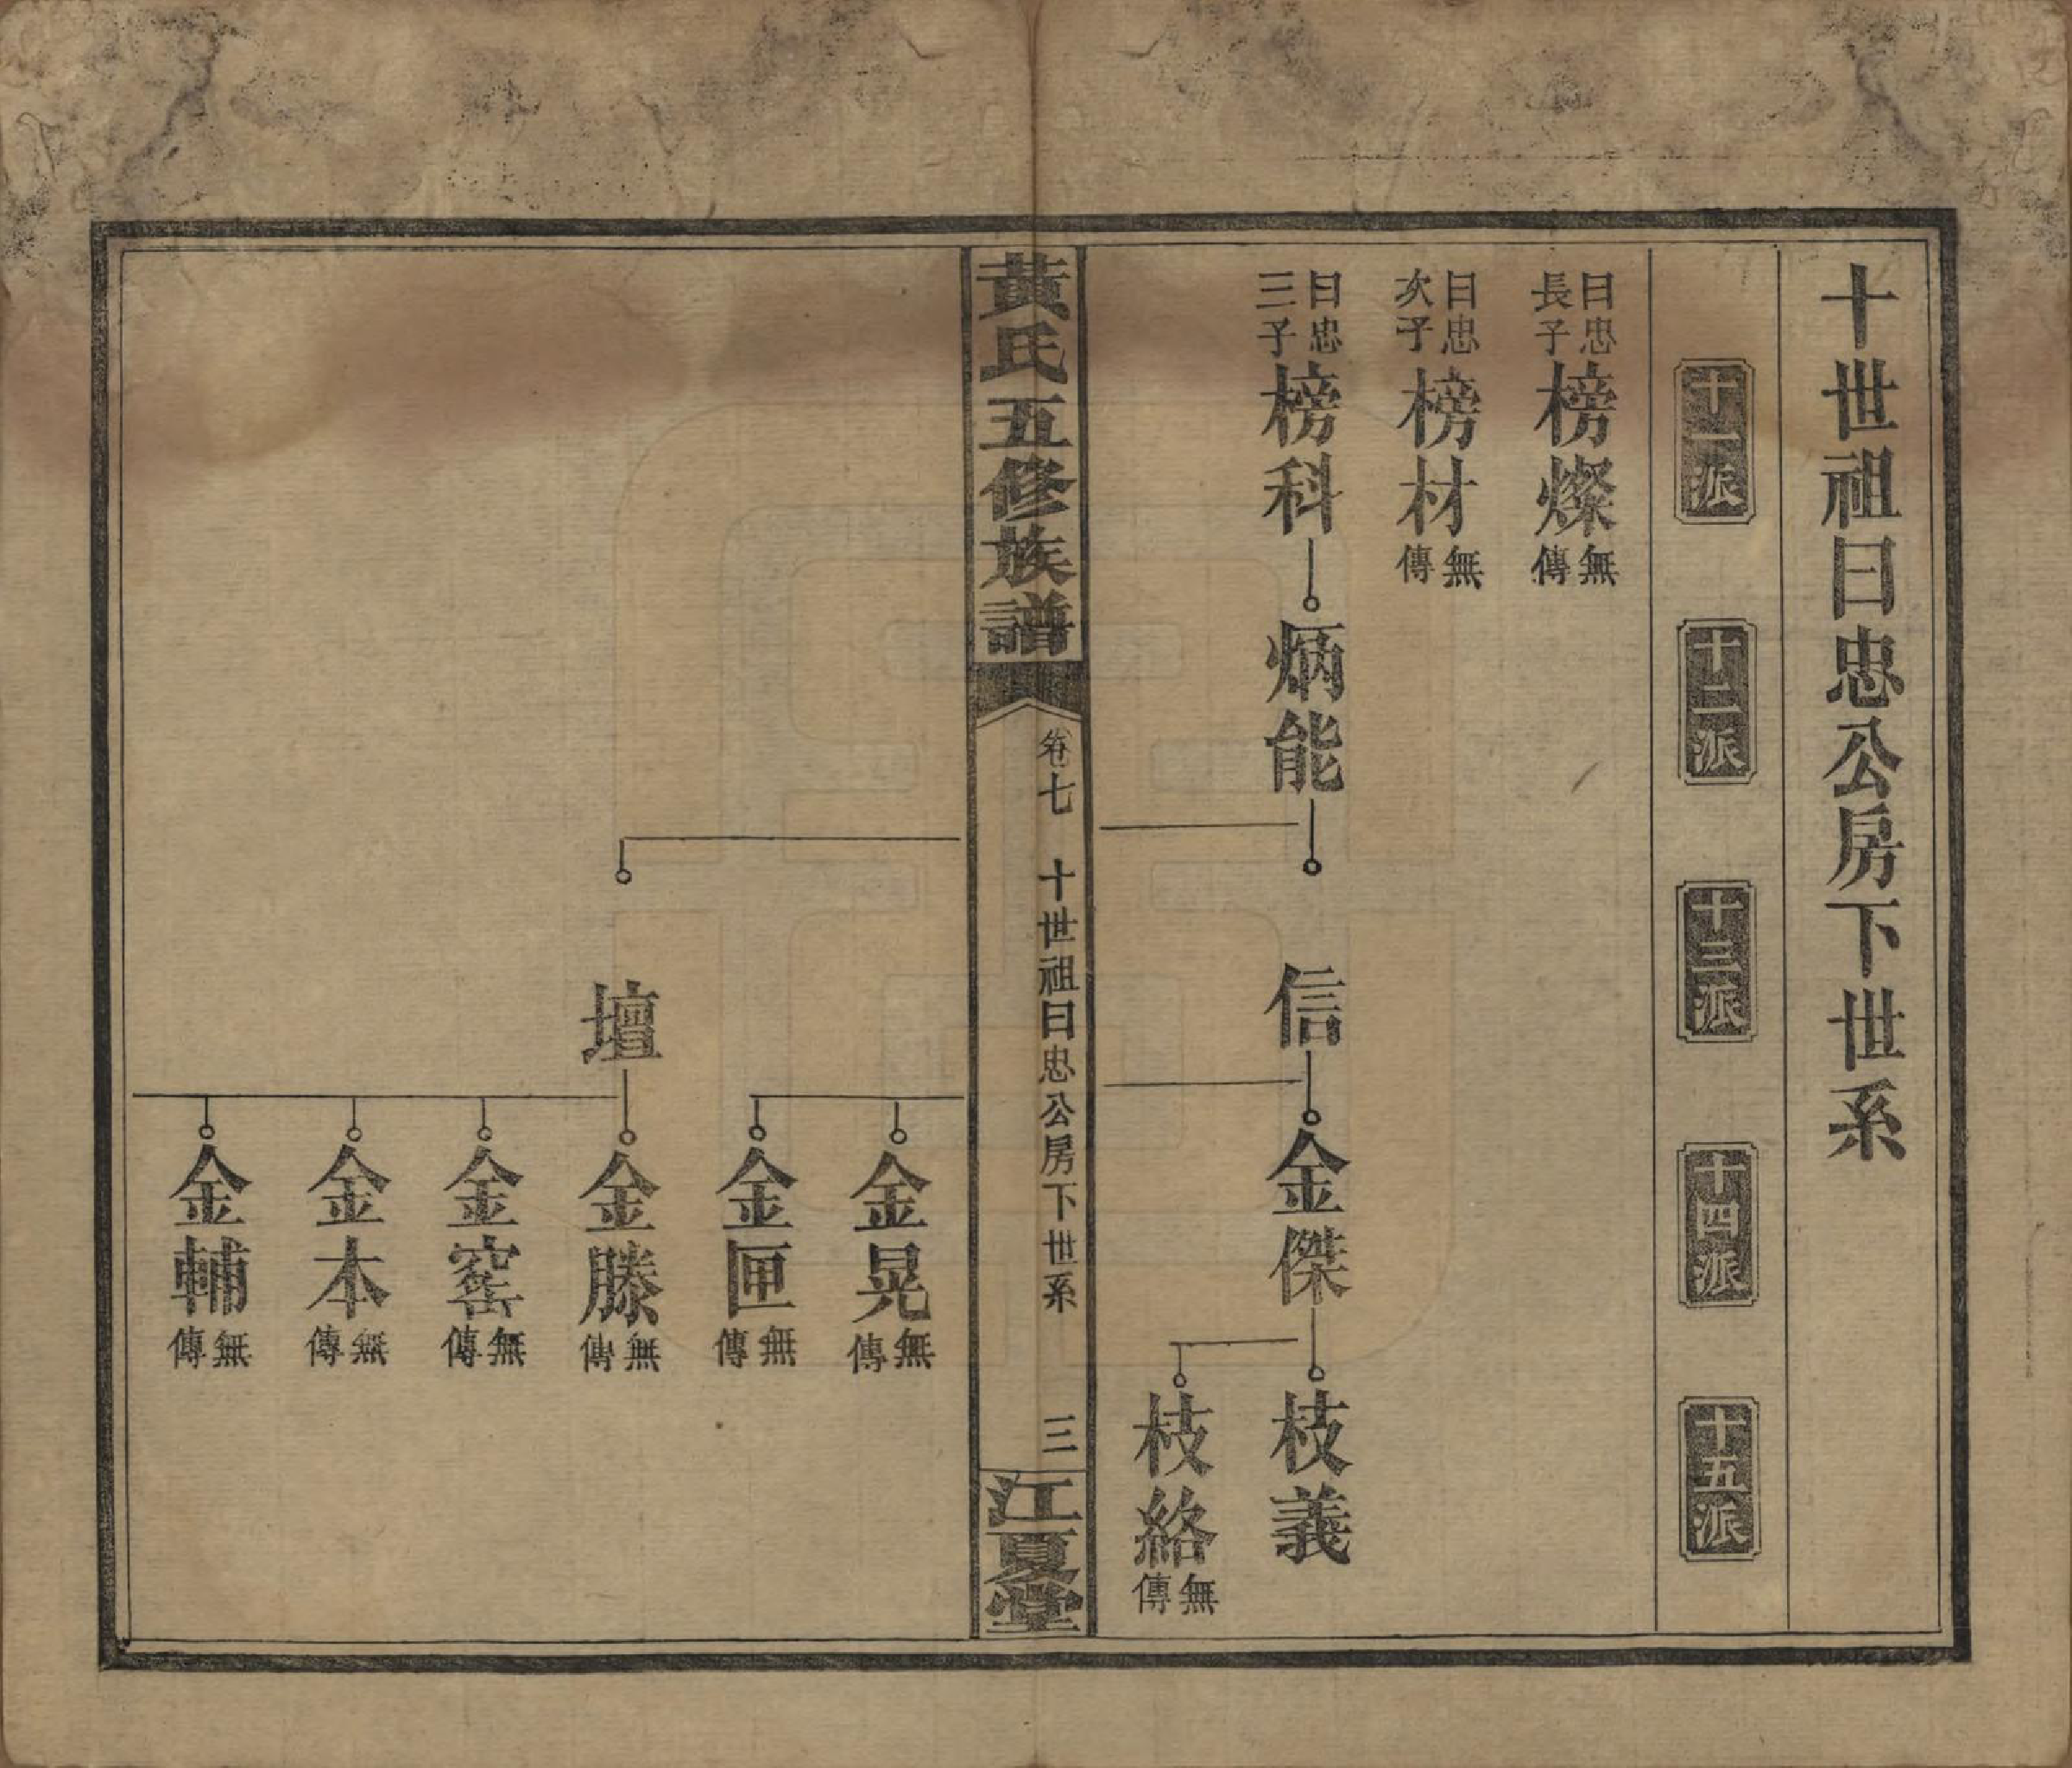 十世祖曰忠公房下世系
十一派
十二派
十三派
十四派
十五派
曰忠長子
榜燦
無傳
曰忠次子
榜材
無傳
曰忠三子
榜科
炳能
信
金傑
枝義
枝絡
無傳
黃氏五修族譜
卷七
十世祖曰忠公房下世系
三
江夏堂
金晃
無傳
金匣
無傳
壇
金滕
無傳
金窰
無傳
金本
無傳
金輔
無傳